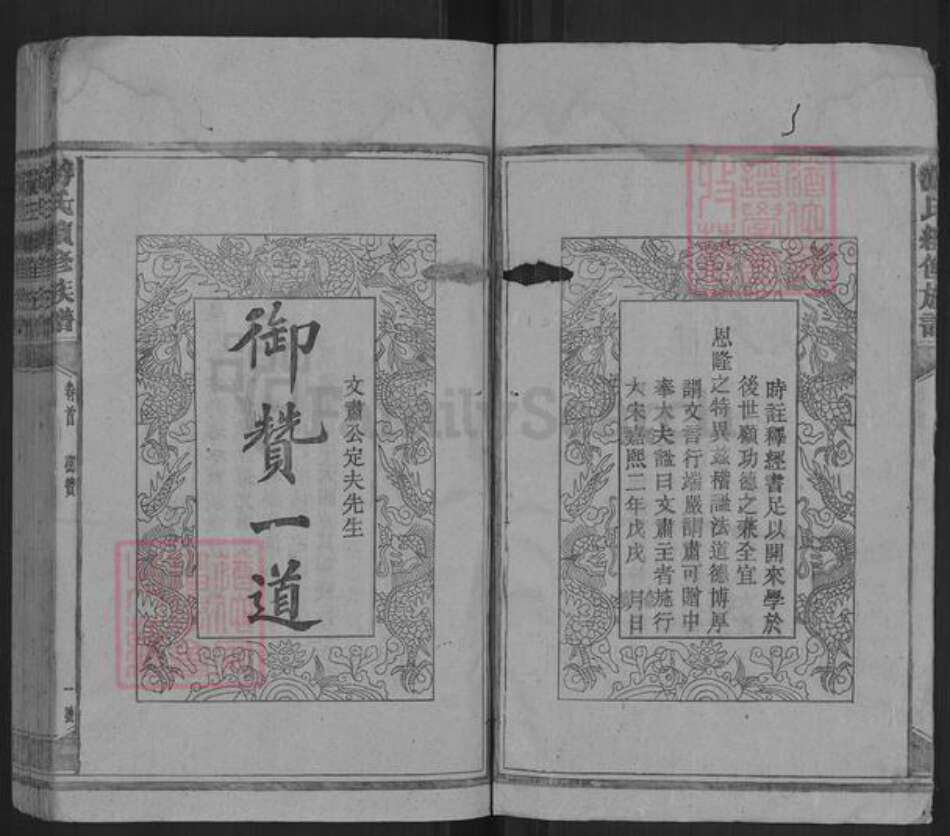 時註釋經書足以開來學於
後世願功德之兼全宜
恩隆之特異茲稽諡法道德博厚
謂文言行端嚴謂肅可贈中
奉大夫諡曰文肅王者施行
大宋嘉熙二年戊戌 月 日
文肅公定夫先生
御贊一道
氏續修族譜
卷首
御贊
一